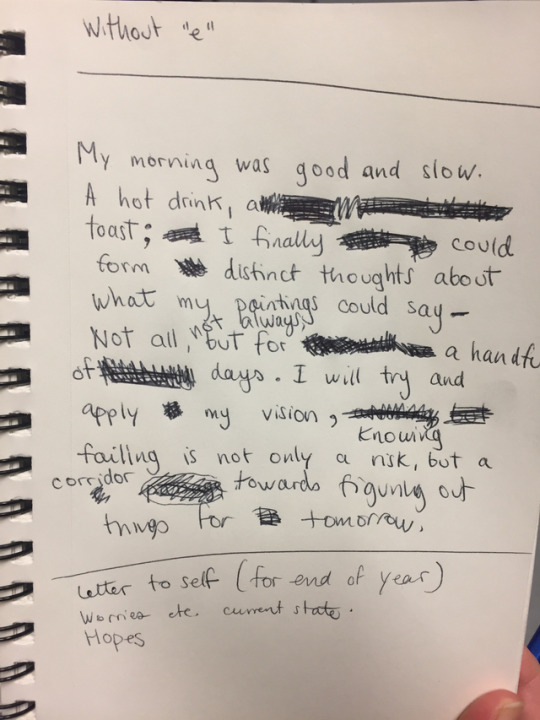 Without "e"
My morning was good and slow.
A hot drink, a
toast; I finally could
form distinct thoughts about
what my paintings could say –
Not all, not always, but for a handfu
of days. I will try and
apply my vision, knowing
failing is not only a risk, but a
corridor towards figuring out
things for tomorrow.
Letter to self (for end of year)
Worries etc. current state.
Hopes